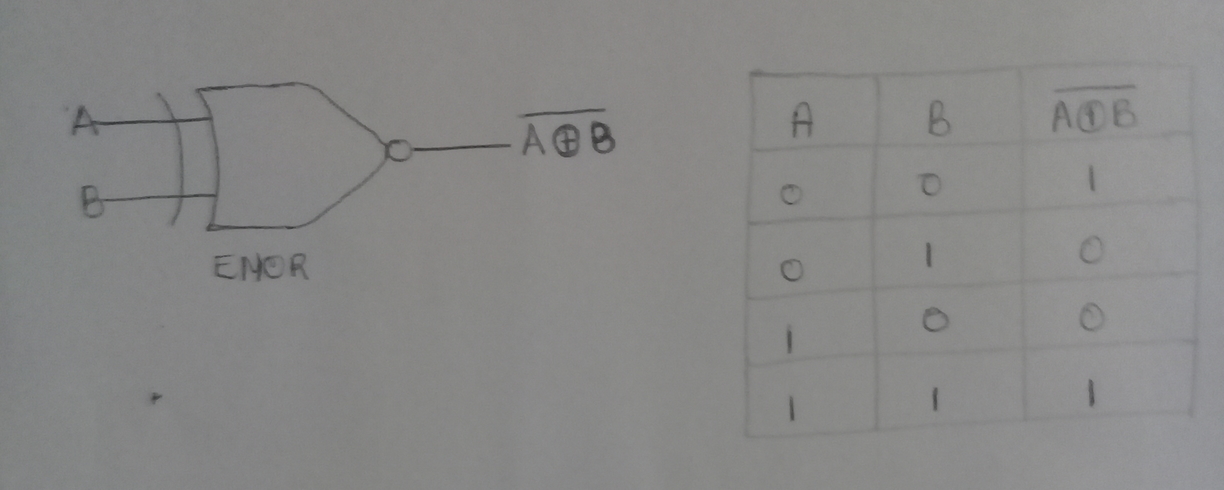 A
B
$\overline{A \oplus B}$
ENOR
A B $\overline{A \oplus B}$
0 0 1
0 1 0
1 0 0
1 1 1